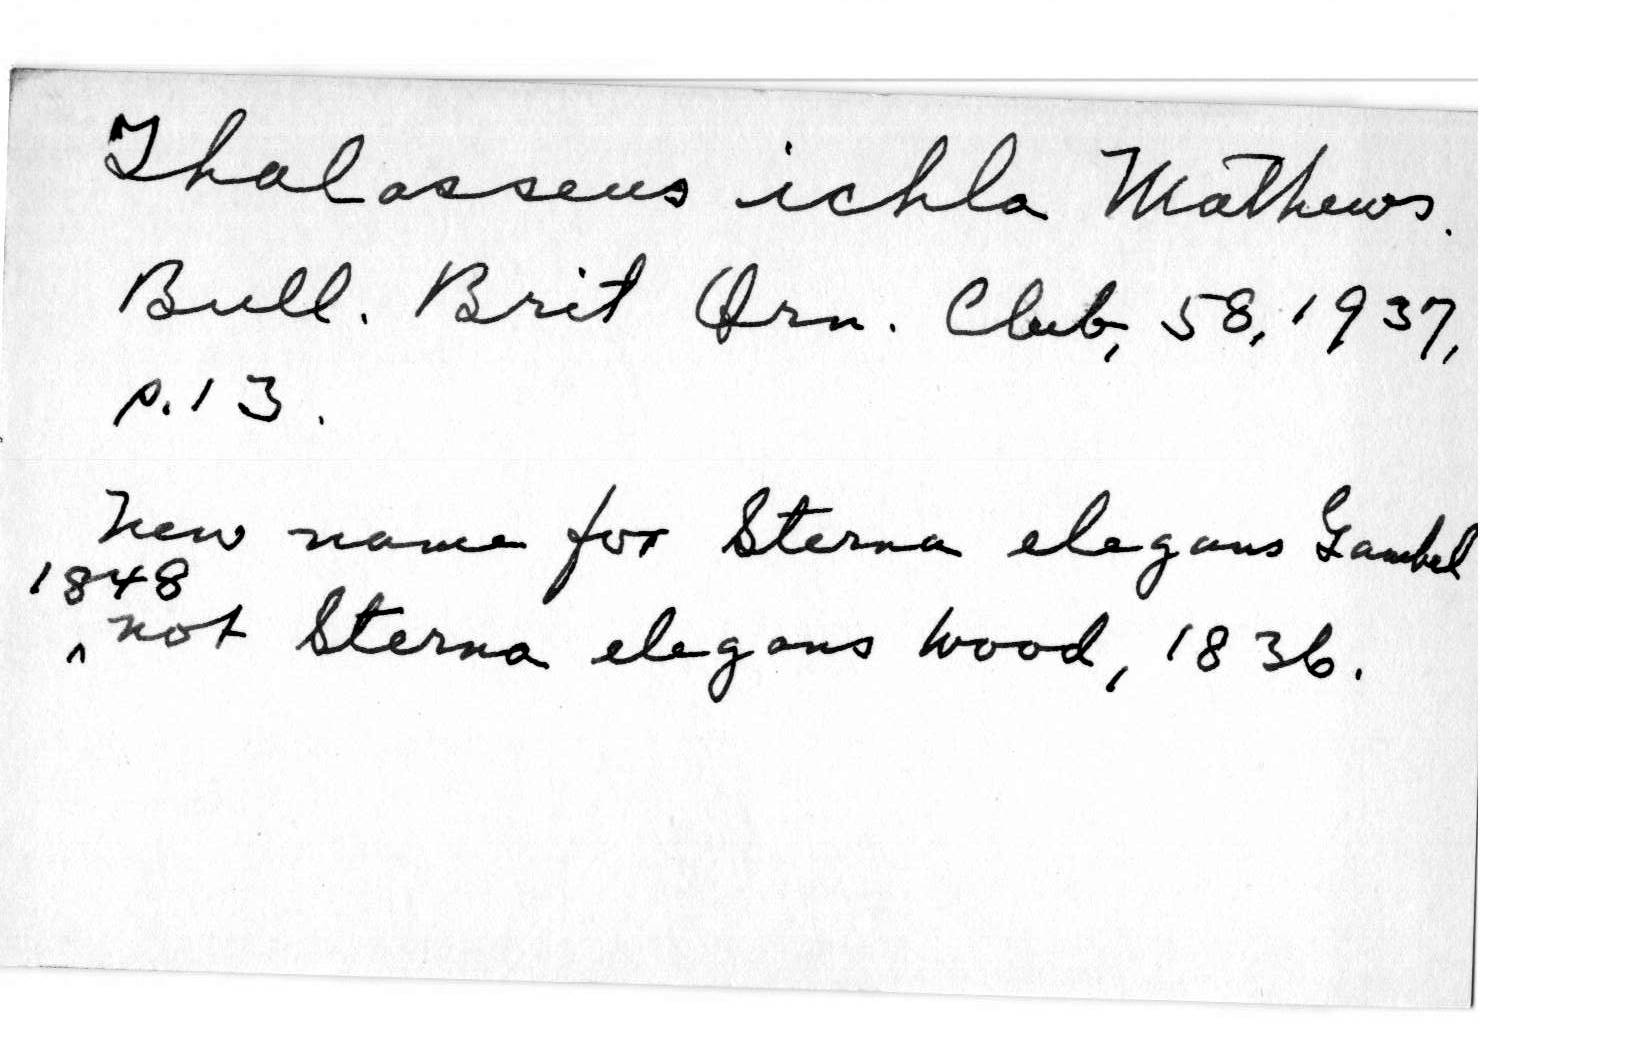 Thalasseus ichla Mathews.
Bull. Brit Orn. Club, 58, 1937,
p. 13.
New name for Sterna elegans Gambel
1848
^ not Sterna elegans Wood, 1836.